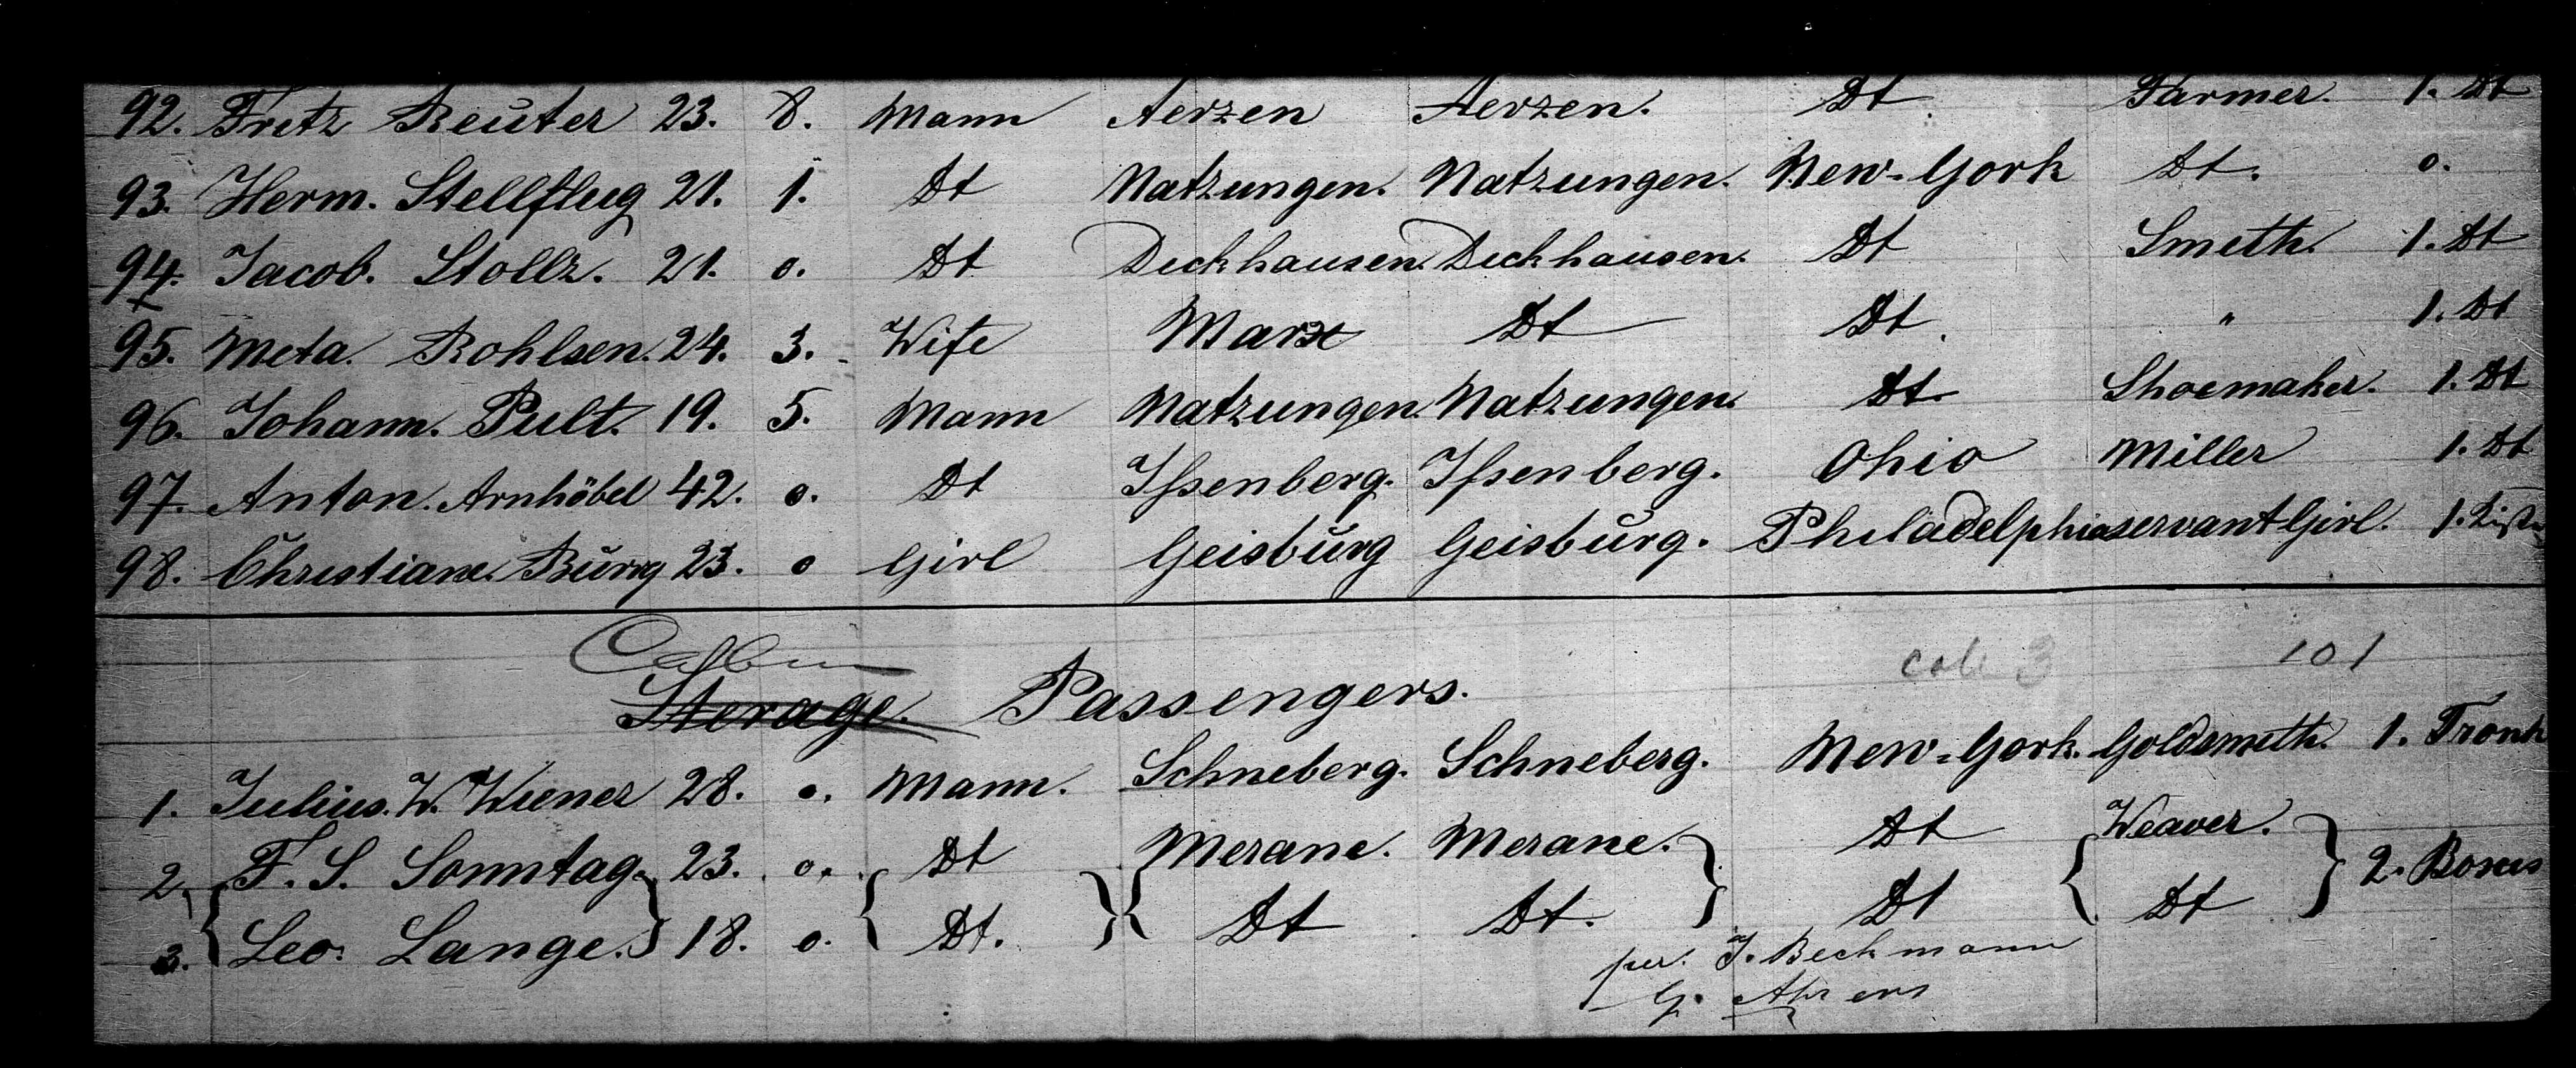 92. Fritz Reuter 23. 8. Mann Aerzen Aerzen. Dt Farmer. 1. Dt
93. Herm. Stellflug 21. 1. Dt Natzungen. Natzungen. New-York Dt. o.
94. Jacob. Stollz. 21. o. Dt Deckhausen. Deckhausen. Dt Smeth. 1. Dt
95. Meta. Rohlsen. 24. 3. Wife Marx Dt Dt " 1. Dt
96. Johann. Pult. 19. 5. Mann Natzungen. Natzungen. Dt Shoemaker. 1. Dt
97. Anton. Arnhöbel 42. o. Dt Issenberg. Issenberg. Ohio Miller 1. Dt
98. Christiane. Burg 23. o Girl Geisburg Geisburg. Philadelphia servant Girl. 1.
101
Sterage. Passengers.
1. Julius. W. Wiener 28. o. Mann. Schneberg. Schneberg. New-York. Goldsmeth. 1. Tronk
2. F. S. Sonntag. 23. o. Dt Merane. Merane. Dt Weaver. 2. Boxes
3. Leo. Lange. 18. o. Dt. Dt Dt. Dt Dt
per. J. Beckmann
G. Ahrens